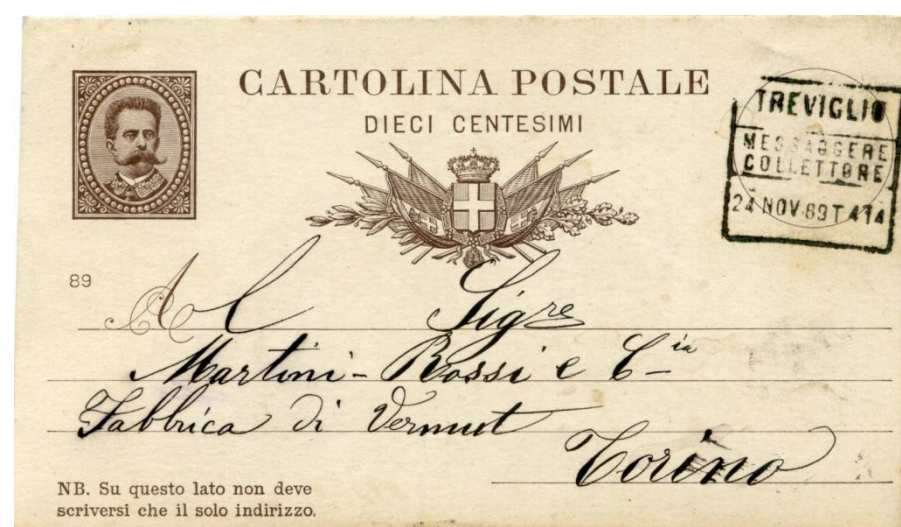 CARTOLINA POSTALE
DIECI CENTESIMI
TREVIGLIO
MESSAGGERE
COLLETTORE
24 NOV. 89 T 414
89
Al Sigre
Martini - Rossi e Cia
Fabbrica di Vermut
Torino
NB. Su questo lato non deve
scriversi che il solo indirizzo.